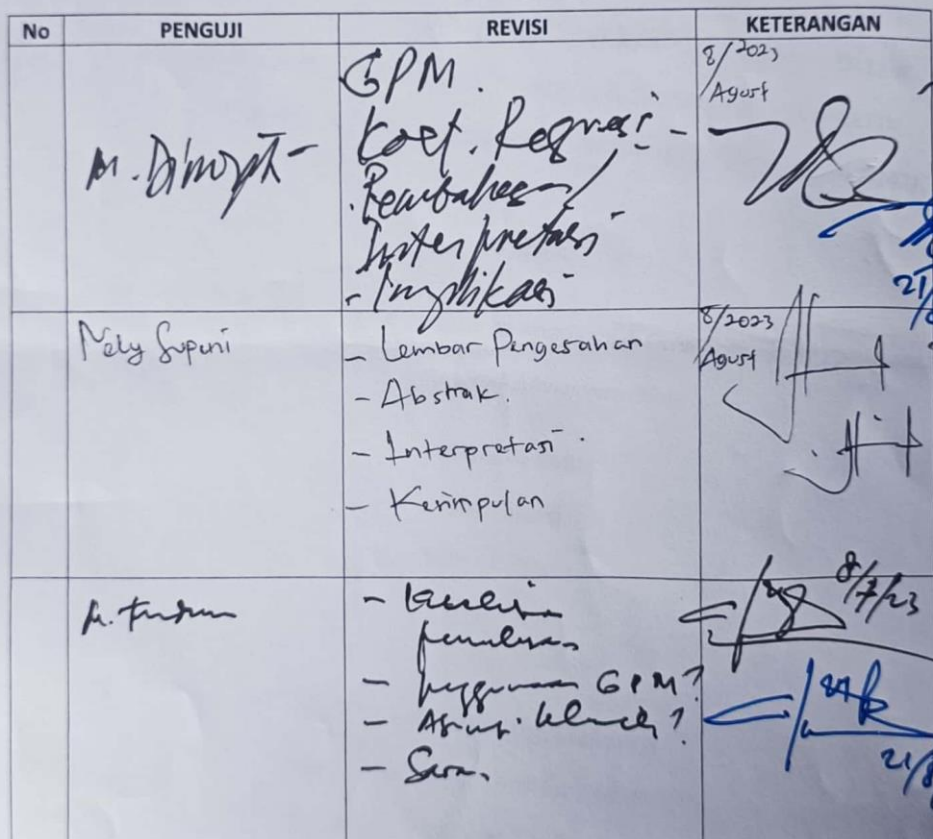 No PENGUJI REVISI KETERANGAN
GPM.
Koef. Regresi -
Pembahasan /
Interpretasi
- Implikasi
8/2023
Agust
21/
Nely Supeni
- Lembar Pengesahan
- Abstrak.
- Interpretasi.
- Kesimpulan
8/2023
Agust
-
penulisan
- penggunaan GPM?
- Asumsi klasik?
- Saran.
8/7/23
21/8